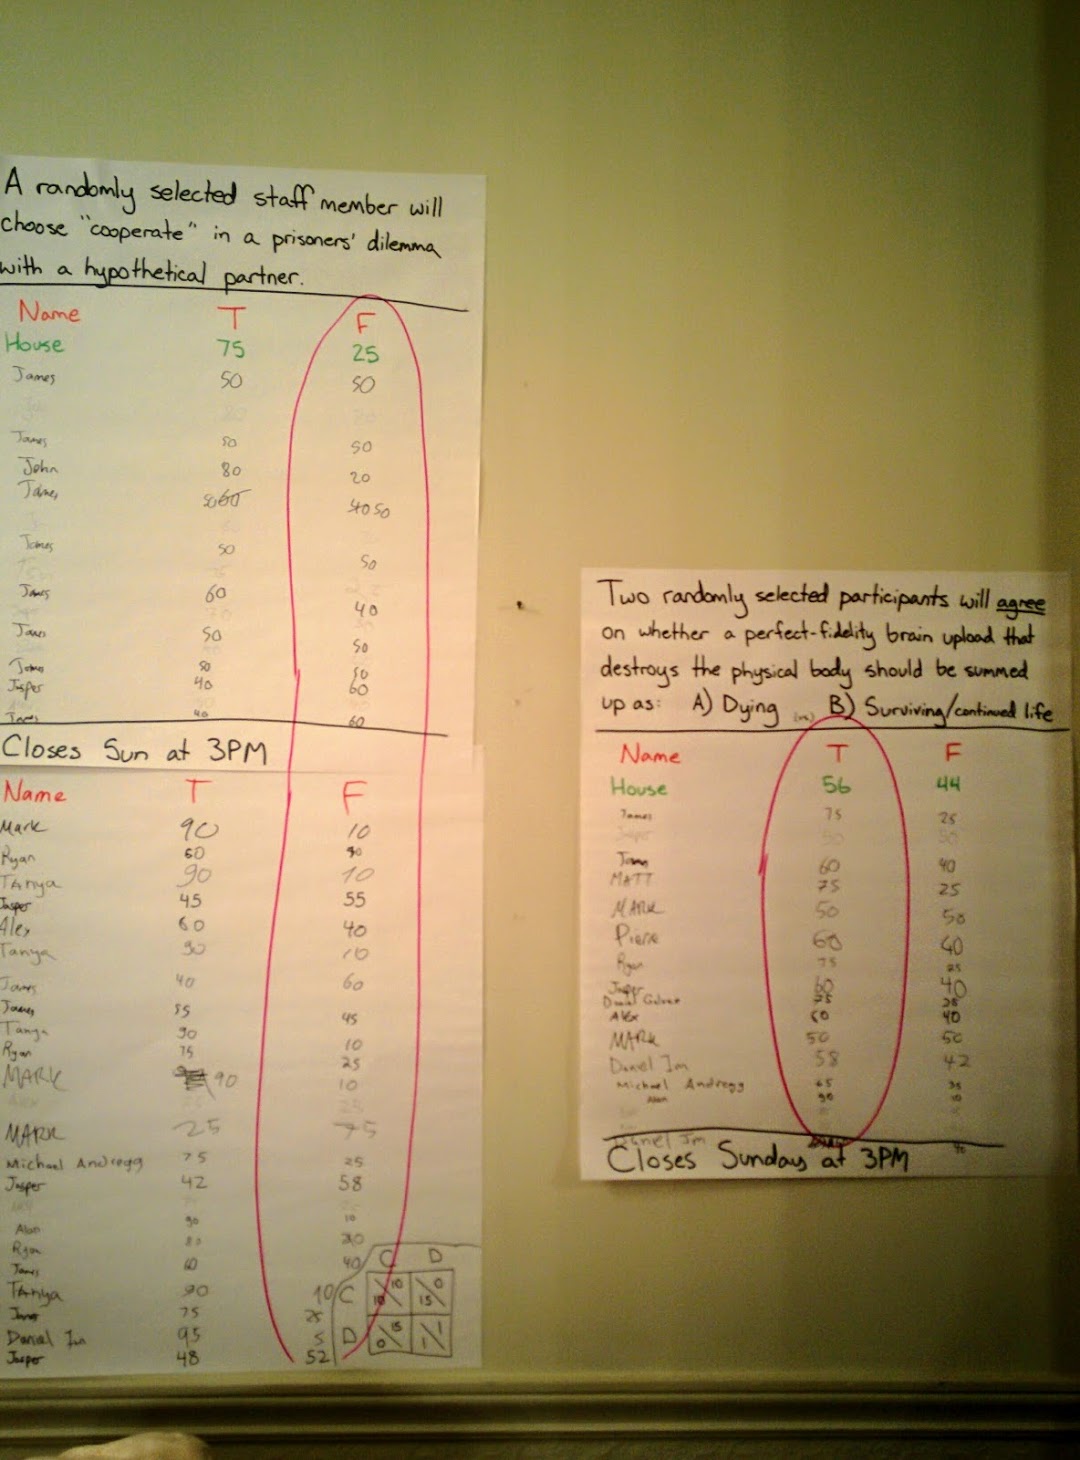 A randomly selected staff member will
choose "cooperate" in a prisoners' dilemma
with a hypothetical partner.
Name T F
House 75 25
James 50 50
James 50 50
John 80 20
James 50 60 40 50
James 50 50
James 60 40
James 50 50
James 50 50
Jasper 40 60
James 40 60
Closes Sun at 3PM
Name T F
Mark 90 10
Ryan 60
Tanya 90 10
Jasper 45 55
Alex 60 40
Tanya 90 10
James 40 60
James 55 45
Tanya 90 10
Ryan 75 25
MARK 90 10
MARK 25 75
Michael Andregg 75 25
Jasper 42 58
Alan 90 10
Ryan 80 20
James 60 40
Tanya 90 10
James 75 25
Daniel Im 95 5
Jasper 48 52
C D
C 10 10 15 0
D 0 15 1 1
Two randomly selected participants will agree
on whether a perfect-fidelity brain upload that
destroys the physical body should be summed
up as: A) Dying (or) B) Surviving/continued life
Name T F
House 56 44
James 75 25
Jasper 50 50
James 60 40
MATT 75 25
MARK 50 50
Pierre 60 40
Ryan 75 25
Jasper 60 40
Daniel 75 25
Alex 60 40
MARK 50 50
Daniel Im 58 42
Michael Andregg 65 35
Alan 90 10
Daniel Im 40
Closes Sunday at 3PM